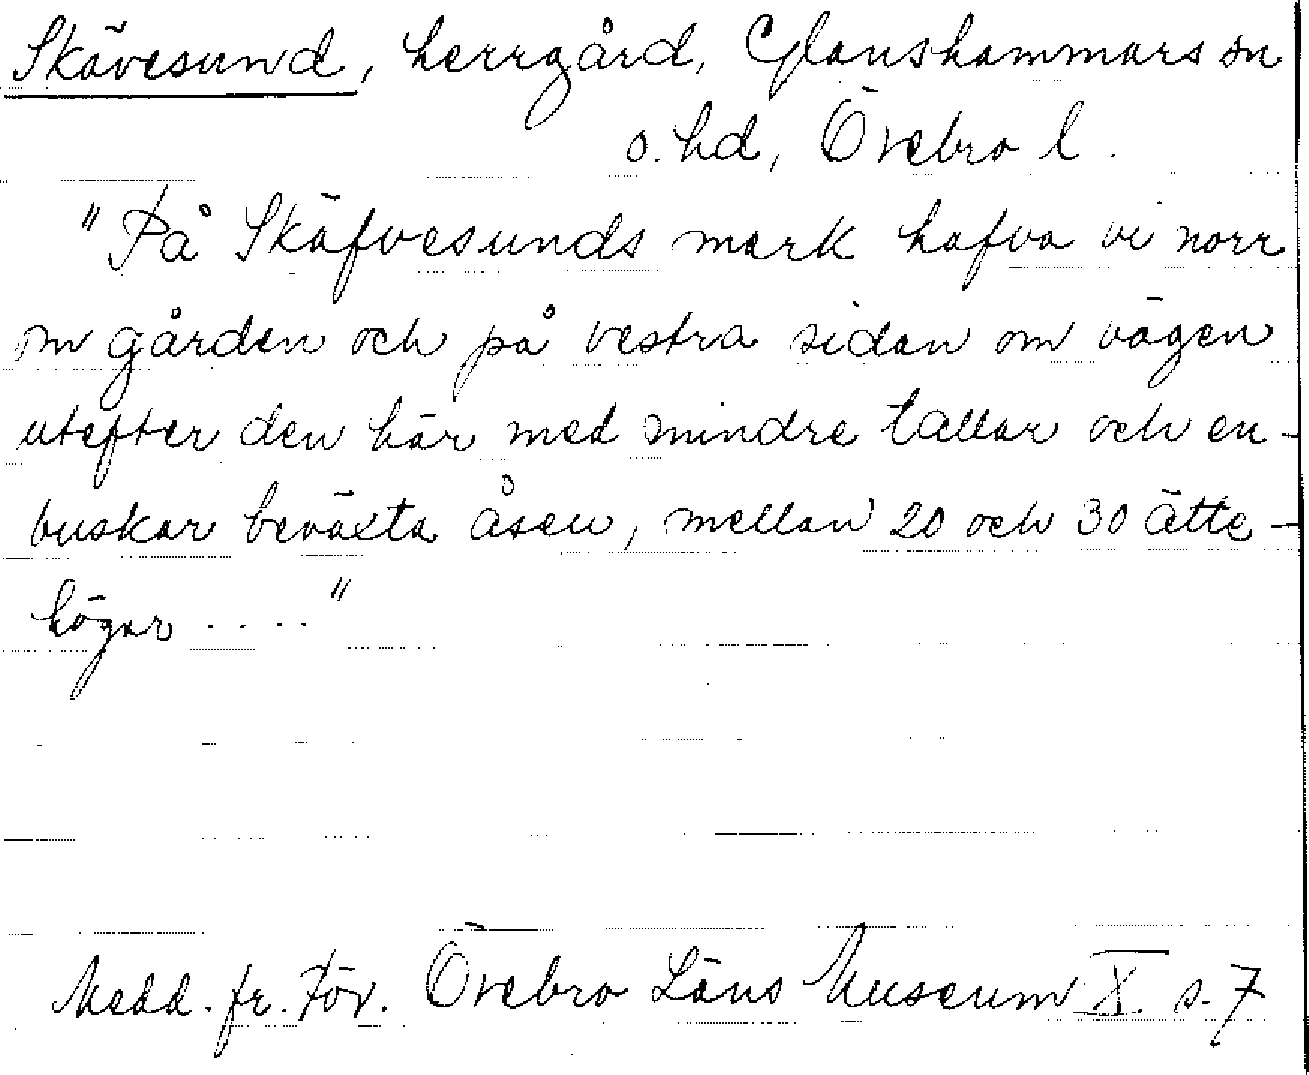 Skävesund, herrgård, Glanshammars sn
o. hd, Örebro l.
"På Skäfvesunds mark hafva vi norr
om gården och på vestra sidan om vägen
utefter den här med mindre tallar och en-
buskar beväxta åsen, mellan 20 och 30 ätte-
högar ...."
Medd. fr. För. Örebro Läns Museum X. s. 7